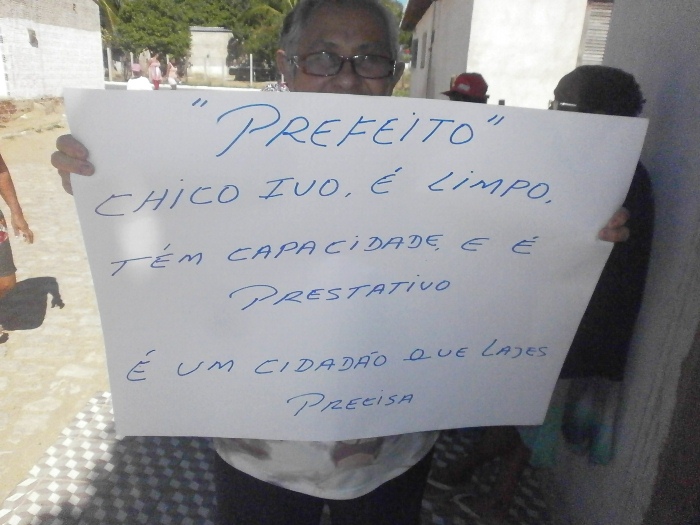 "PREFEITO"
CHICO IVO. É LIMPO,
TÉM CAPACIDADE, E É
PRESTATIVO
É UM CIDADÃO QUE LAJES
PRECISA